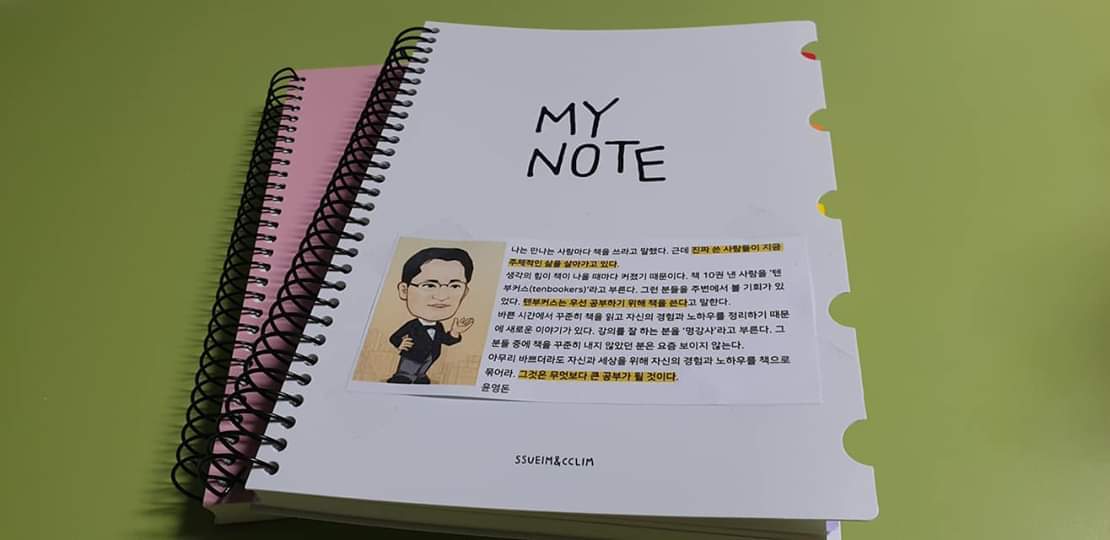 MY
NOTE
나는 만나는 사람마다 책을 쓰라고 말했다. 근데 진짜 쓴 사람들이 지금
주체적인 삶을 살아가고 있다.
생각의 힘이 책이 나올 때마다 커졌기 때문이다. 책 10권 낸 사람을 '텐
부커스(tenbookers)'라고 부른다. 그런 분들을 주변에서 볼 기회가 있
었다. 텐부커스는 우선 공부하기 위해 책을 쓴다고 말한다.
바쁜 시간에서 꾸준히 책을 읽고 자신의 경험과 노하우를 정리하기 때문
에 새로운 이야기가 있다. 강의를 잘 하는 분을 '명강사'라고 부른다. 그
분들 중에 책을 꾸준히 내지 않았던 분은 요즘 보이지 않는다.
아무리 바쁘더라도 자신과 세상을 위해 자신의 경험과 노하우를 책으로
묶어라. 그것은 무엇보다 큰 공부가 될 것이다.
윤영돈
SSUEIM&CCLIM